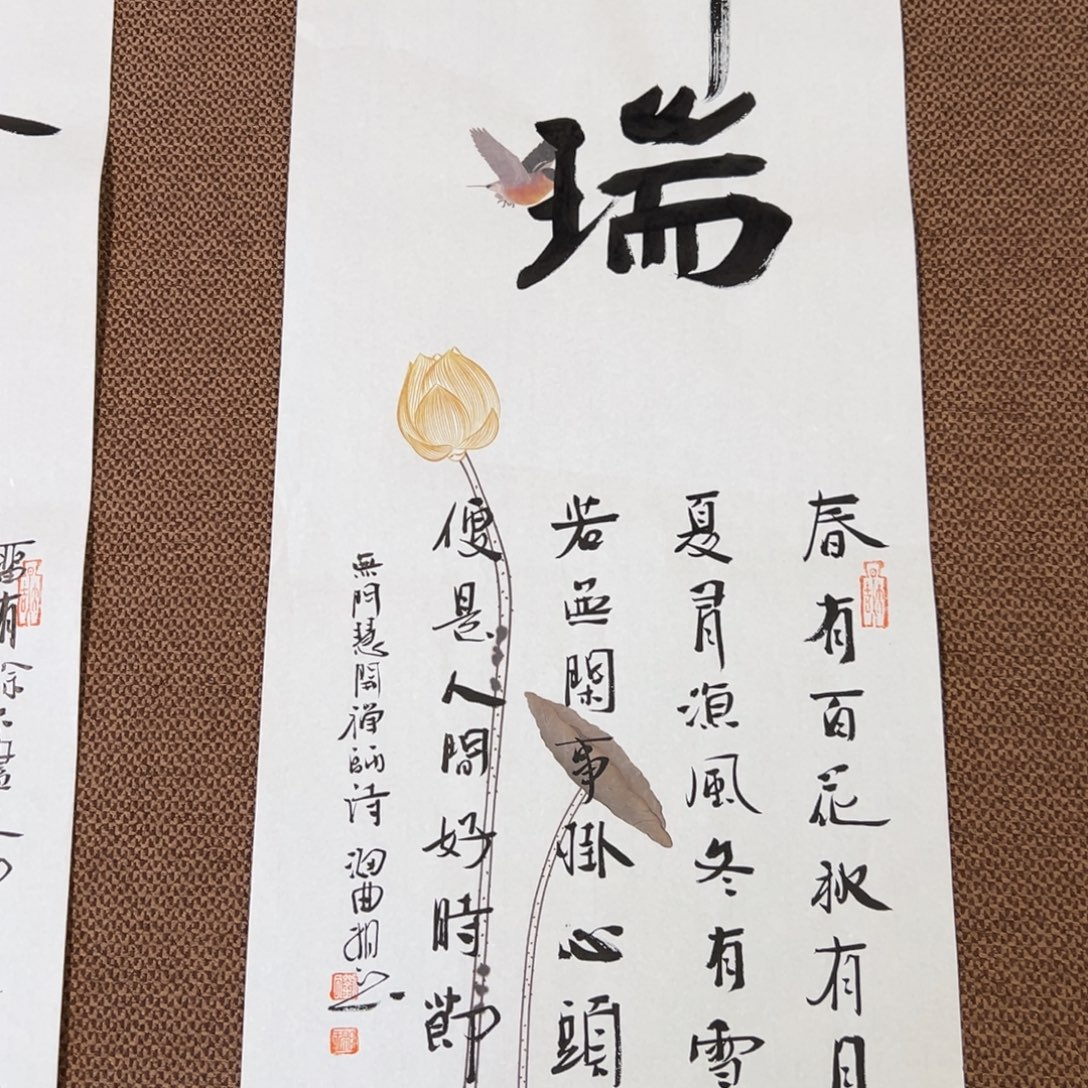 瑞
春有百花秋有月
夏有涼風冬有雪
若無閑事掛心頭
便是人間好時節
無門慧開禪師詩
有餘不盡